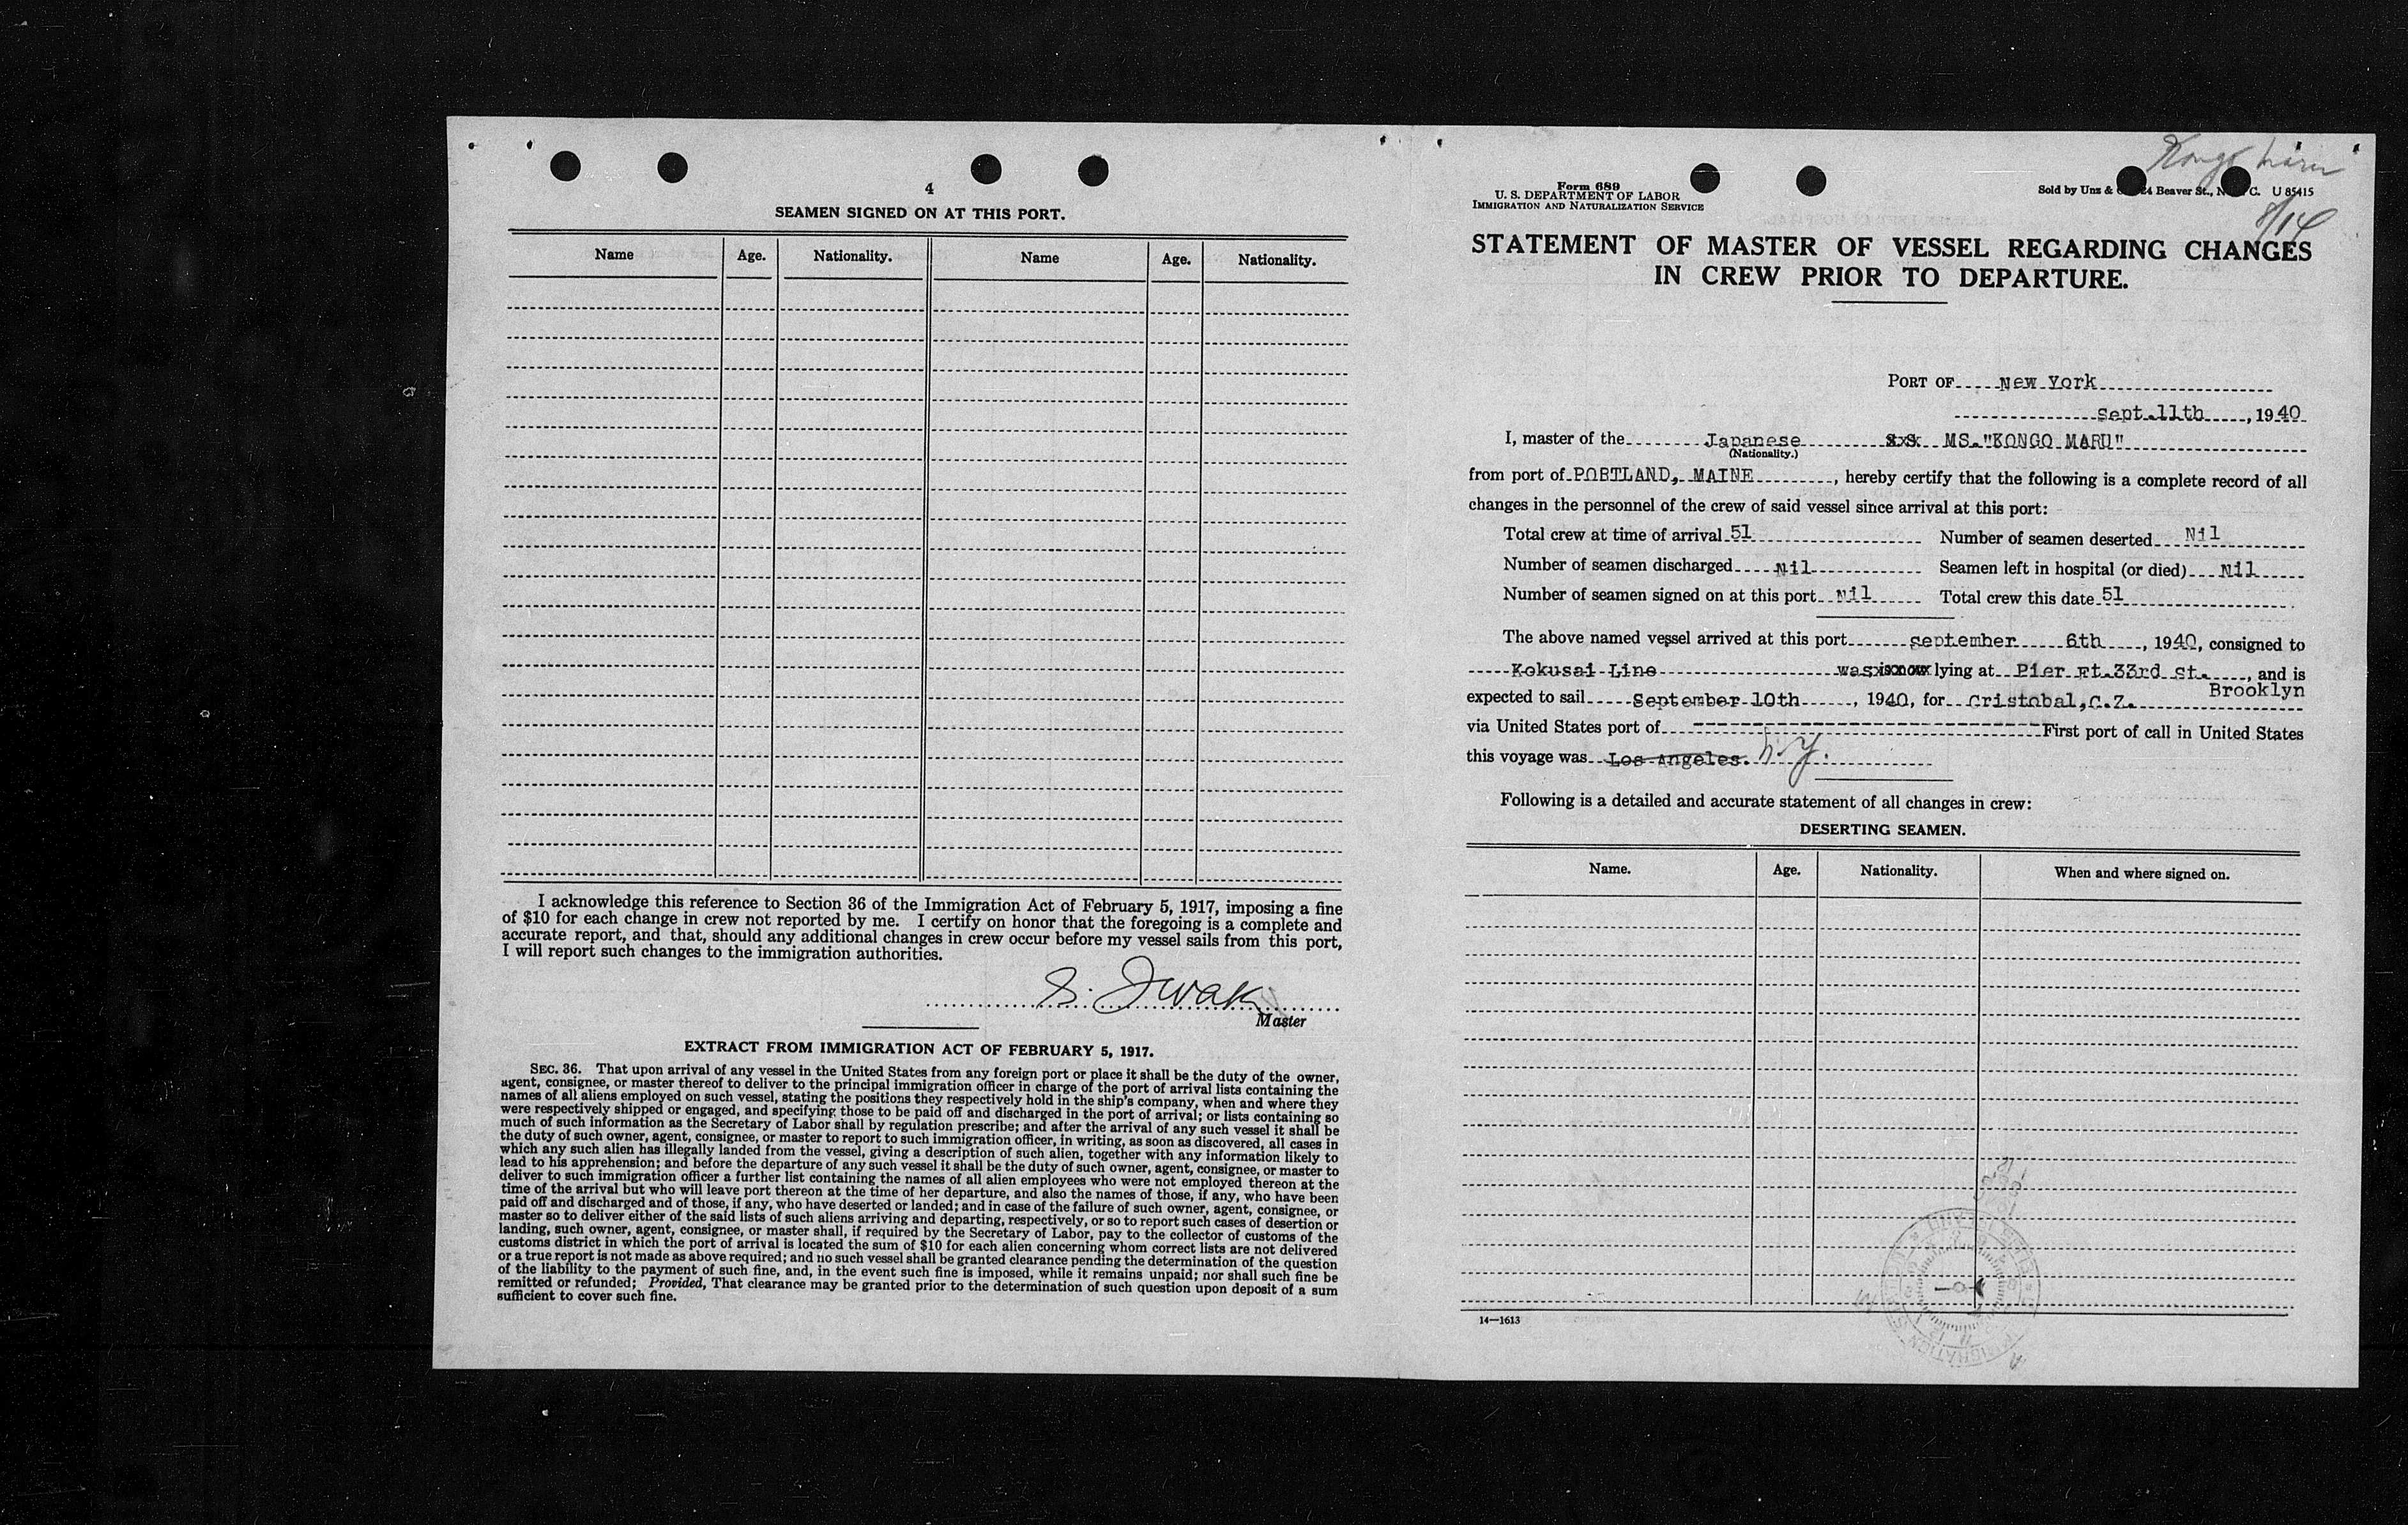 4
SEAMEN SIGNED ON AT THIS PORT.
Name Age. Nationality. Name Age. Nationality.
I acknowledge this reference to Section 36 of the Immigration Act of February 5, 1917, imposing a fine
of $10 for each change in crew not reported by me. I certify on honor that the foregoing is a complete and
accurate report, and that, should any additional changes in crew occur before my vessel sails from this port,
I will report such changes to the immigration authorities.
S. Iwaki
Master
EXTRACT FROM IMMIGRATION ACT OF FEBRUARY 5, 1917.
SEC. 36. That upon arrival of any vessel in the United States from any foreign port or place it shall be the duty of the owner,
agent, consignee, or master thereof to deliver to the principal immigration officer in charge of the port of arrival lists containing the
names of all aliens employed on such vessel, stating the positions they respectively hold in the ship's company, when and where they
were respectively shipped or engaged, and specifying those to be paid off and discharged in the port of arrival; or lists containing so
much of such information as the Secretary of Labor shall by regulation prescribe; and after the arrival of any such vessel it shall be
the duty of such owner, agent, consignee, or master to report to such immigration officer, in writing, as soon as discovered, all cases in
which any such alien has illegally landed from the vessel, giving a description of such alien, together with any information likely to
lead to his apprehension; and before the departure of any such vessel it shall be the duty of such owner, agent, consignee, or master to
deliver to such immigration officer a further list containing the names of all alien employees who were not employed thereon at the
time of the arrival but who will leave port thereon at the time of her departure, and also the names of those, if any, who have been
paid off and discharged and of those, if any, who have deserted or landed; and in case of the failure of such owner, agent, consignee, or
master so to deliver either of the said lists of such aliens arriving and departing, respectively, or so to report such cases of desertion or
landing, such owner, agent, consignee, or master shall, if required by the Secretary of Labor, pay to the collector of customs of the
customs district in which the port of arrival is located the sum of $10 for each alien concerning whom correct lists are not delivered
or a true report is not made as above required; and no such vessel shall be granted clearance pending the determination of the question
of the liability to the payment of such fine, and, in the event such fine is imposed, while it remains unpaid; nor shall such fine be
remitted or refunded; Provided, That clearance may be granted prior to the determination of such question upon deposit of a sum
sufficient to cover such fine.
Kongo Maru
Form 689
U. S. DEPARTMENT OF LABOR
IMMIGRATION AND NATURALIZATION SERVICE
Sold by Unz & 24 Beaver St., N C. U 85415
8/14
STATEMENT OF MASTER OF VESSEL REGARDING CHANGES
IN CREW PRIOR TO DEPARTURE.
PORT OF New York
Sept.11th, 1940
I, master of the Japanese S.S. MS."KONGO MARU"
(Nationality.)
from port of PORTLAND, MAINE, hereby certify that the following is a complete record of all
changes in the personnel of the crew of said vessel since arrival at this port:
Total crew at time of arrival 51 Number of seamen deserted Nil
Number of seamen discharged Nil Seamen left in hospital (or died) Nil
Number of seamen signed on at this port Nil Total crew this date 51
The above named vessel arrived at this port September 6th, 1940, consigned to
Kokusai Line was is now lying at Pier Ft.33rd St., and is
Brooklyn
expected to sail September 10th, 1940, for Cristobal,C.Z.
via United States port of First port of call in United States
this voyage was Los Angeles. N.Y.
Following is a detailed and accurate statement of all changes in crew:
DESERTING SEAMEN.
Name. Age. Nationality. When and where signed on.
14—1613